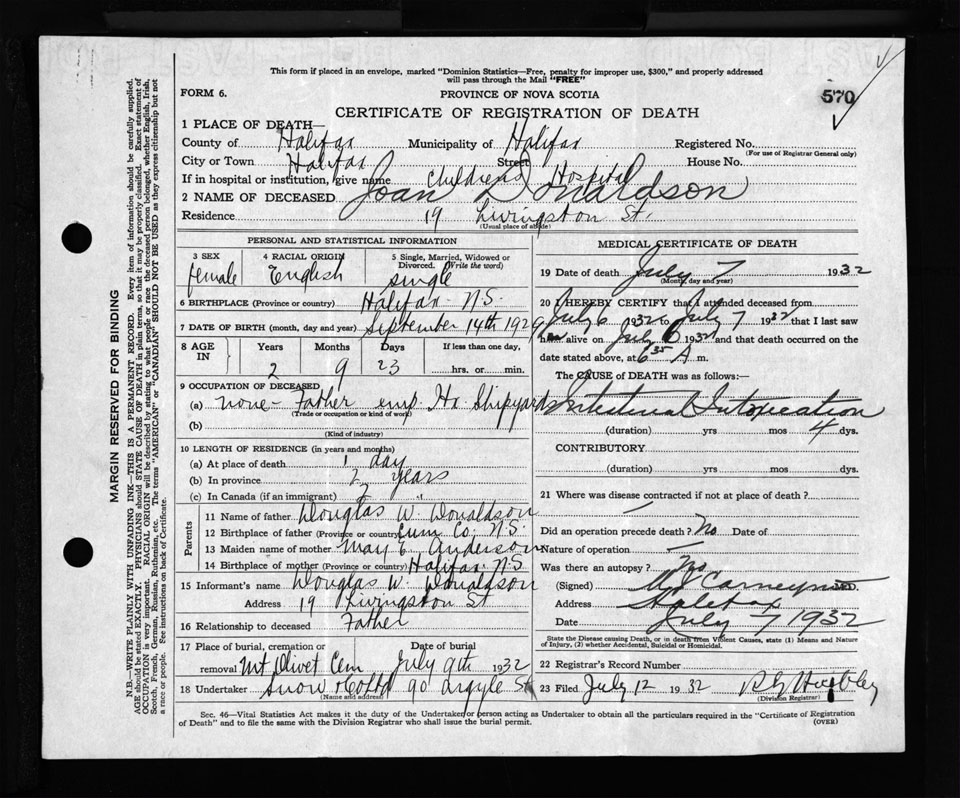 This form if placed in an envelope, marked "Dominion Statistics—Free, penalty for improper use, $300," and properly addressed
will pass through the Mail "FREE"
FORM 6.
PROVINCE OF NOVA SCOTIA
570
CERTIFICATE OF REGISTRATION OF DEATH
1 PLACE OF DEATH—
County of Halifax Municipality of Halifax Registered No.
(For use of Registrar General only)
City or Town Halifax Street House No.
If in hospital or institution, give name Childrens Hospital
2 NAME OF DECEASED Joan Donaldson
Residence 19 Livingston St.
(Usual place of abode)
PERSONAL AND STATISTICAL INFORMATION
3 SEX female
4 RACIAL ORIGIN English
5 Single, Married, Widowed or Divorced. (Write the word) single
6 BIRTHPLACE (Province or country) Halifax N.S.
7 DATE OF BIRTH (month, day and year) September 14th 1929
8 AGE IN Years Months Days If less than one day,
2 9 23 hrs. or min.
9 OCCUPATION OF DECEASED
(a) none - Father emp. Hx. Shipyards
(Trade or occupation or kind of work)
(b)
(Kind of industry)
10 LENGTH OF RESIDENCE (in years and months)
(a) At place of death 1 day
(b) In province 2 years
(c) In Canada (if an immigrant) 2 "
Parents
11 Name of father Douglas W. Donaldson
12 Birthplace of father (Province or country) Cum Co. N.S.
13 Maiden name of mother May E. Anderson
14 Birthplace of mother (Province or country) Halifax N.S
15 Informant's name Douglas W. Donaldson
Address 19 Livingston St
16 Relationship to deceased Father
17 Place of burial, cremation or removal Mt Olivet Cem Date of burial July 9th 1932
18 Undertaker Snow & Co Ltd 90 Argyle St
(Name and address)
MEDICAL CERTIFICATE OF DEATH
19 Date of death July 7 1932
(Month, day and year)
20 I HEREBY CERTIFY that I attended deceased from
July 6 1932 to July 7 1932 that I last saw
h alive on July 6 1932 and that death occurred on the
date stated above, at 6 35 A m.
The CAUSE OF DEATH was as follows:—
Intestinal Intoxication
(duration) yrs mos 4 dys.
CONTRIBUTORY
(duration) yrs mos dys.
21 Where was disease contracted if not at place of death?
Did an operation precede death? No Date of
Nature of operation
Was there an autopsy? No
(Signed) Carney
Address
Date July 7 1932
State the Disease causing Death, or in death from Violent Causes, state (1) Means and Nature
of Injury, (2) whether Accidental, Suicidal or Homicidal.
22 Registrar's Record Number
23 Filed July 12 1932
(Division Registrar)
Sec. 46—Vital Statistics Act makes it the duty of the Undertaker or person acting as Undertaker to obtain all the particulars required in the "Certificate of Registration
of Death" and to file the same with the Division Registrar who shall issue the burial permit.
(OVER)
MARGIN RESERVED FOR BINDING
N.B.—WRITE PLAINLY WITH UNFADING INK—THIS IS A PERMANENT RECORD. Every item of information should be carefully supplied.
AGE should be stated EXACTLY. PHYSICIANS should STATE CAUSE OF DEATH in plain terms, so that it may be properly classified. Exact statement of
OCCUPATION is very important. RACIAL ORIGIN will be described by stating to what people or race the deceased person belonged, whether English, Irish,
Scotch, French, German, Russian, Ruthenian, etc. The terms "AMERICAN" or "CANADIAN" SHOULD NOT BE USED as they express citizenship but not
a race or people. Fee instructions on back of Certificate.